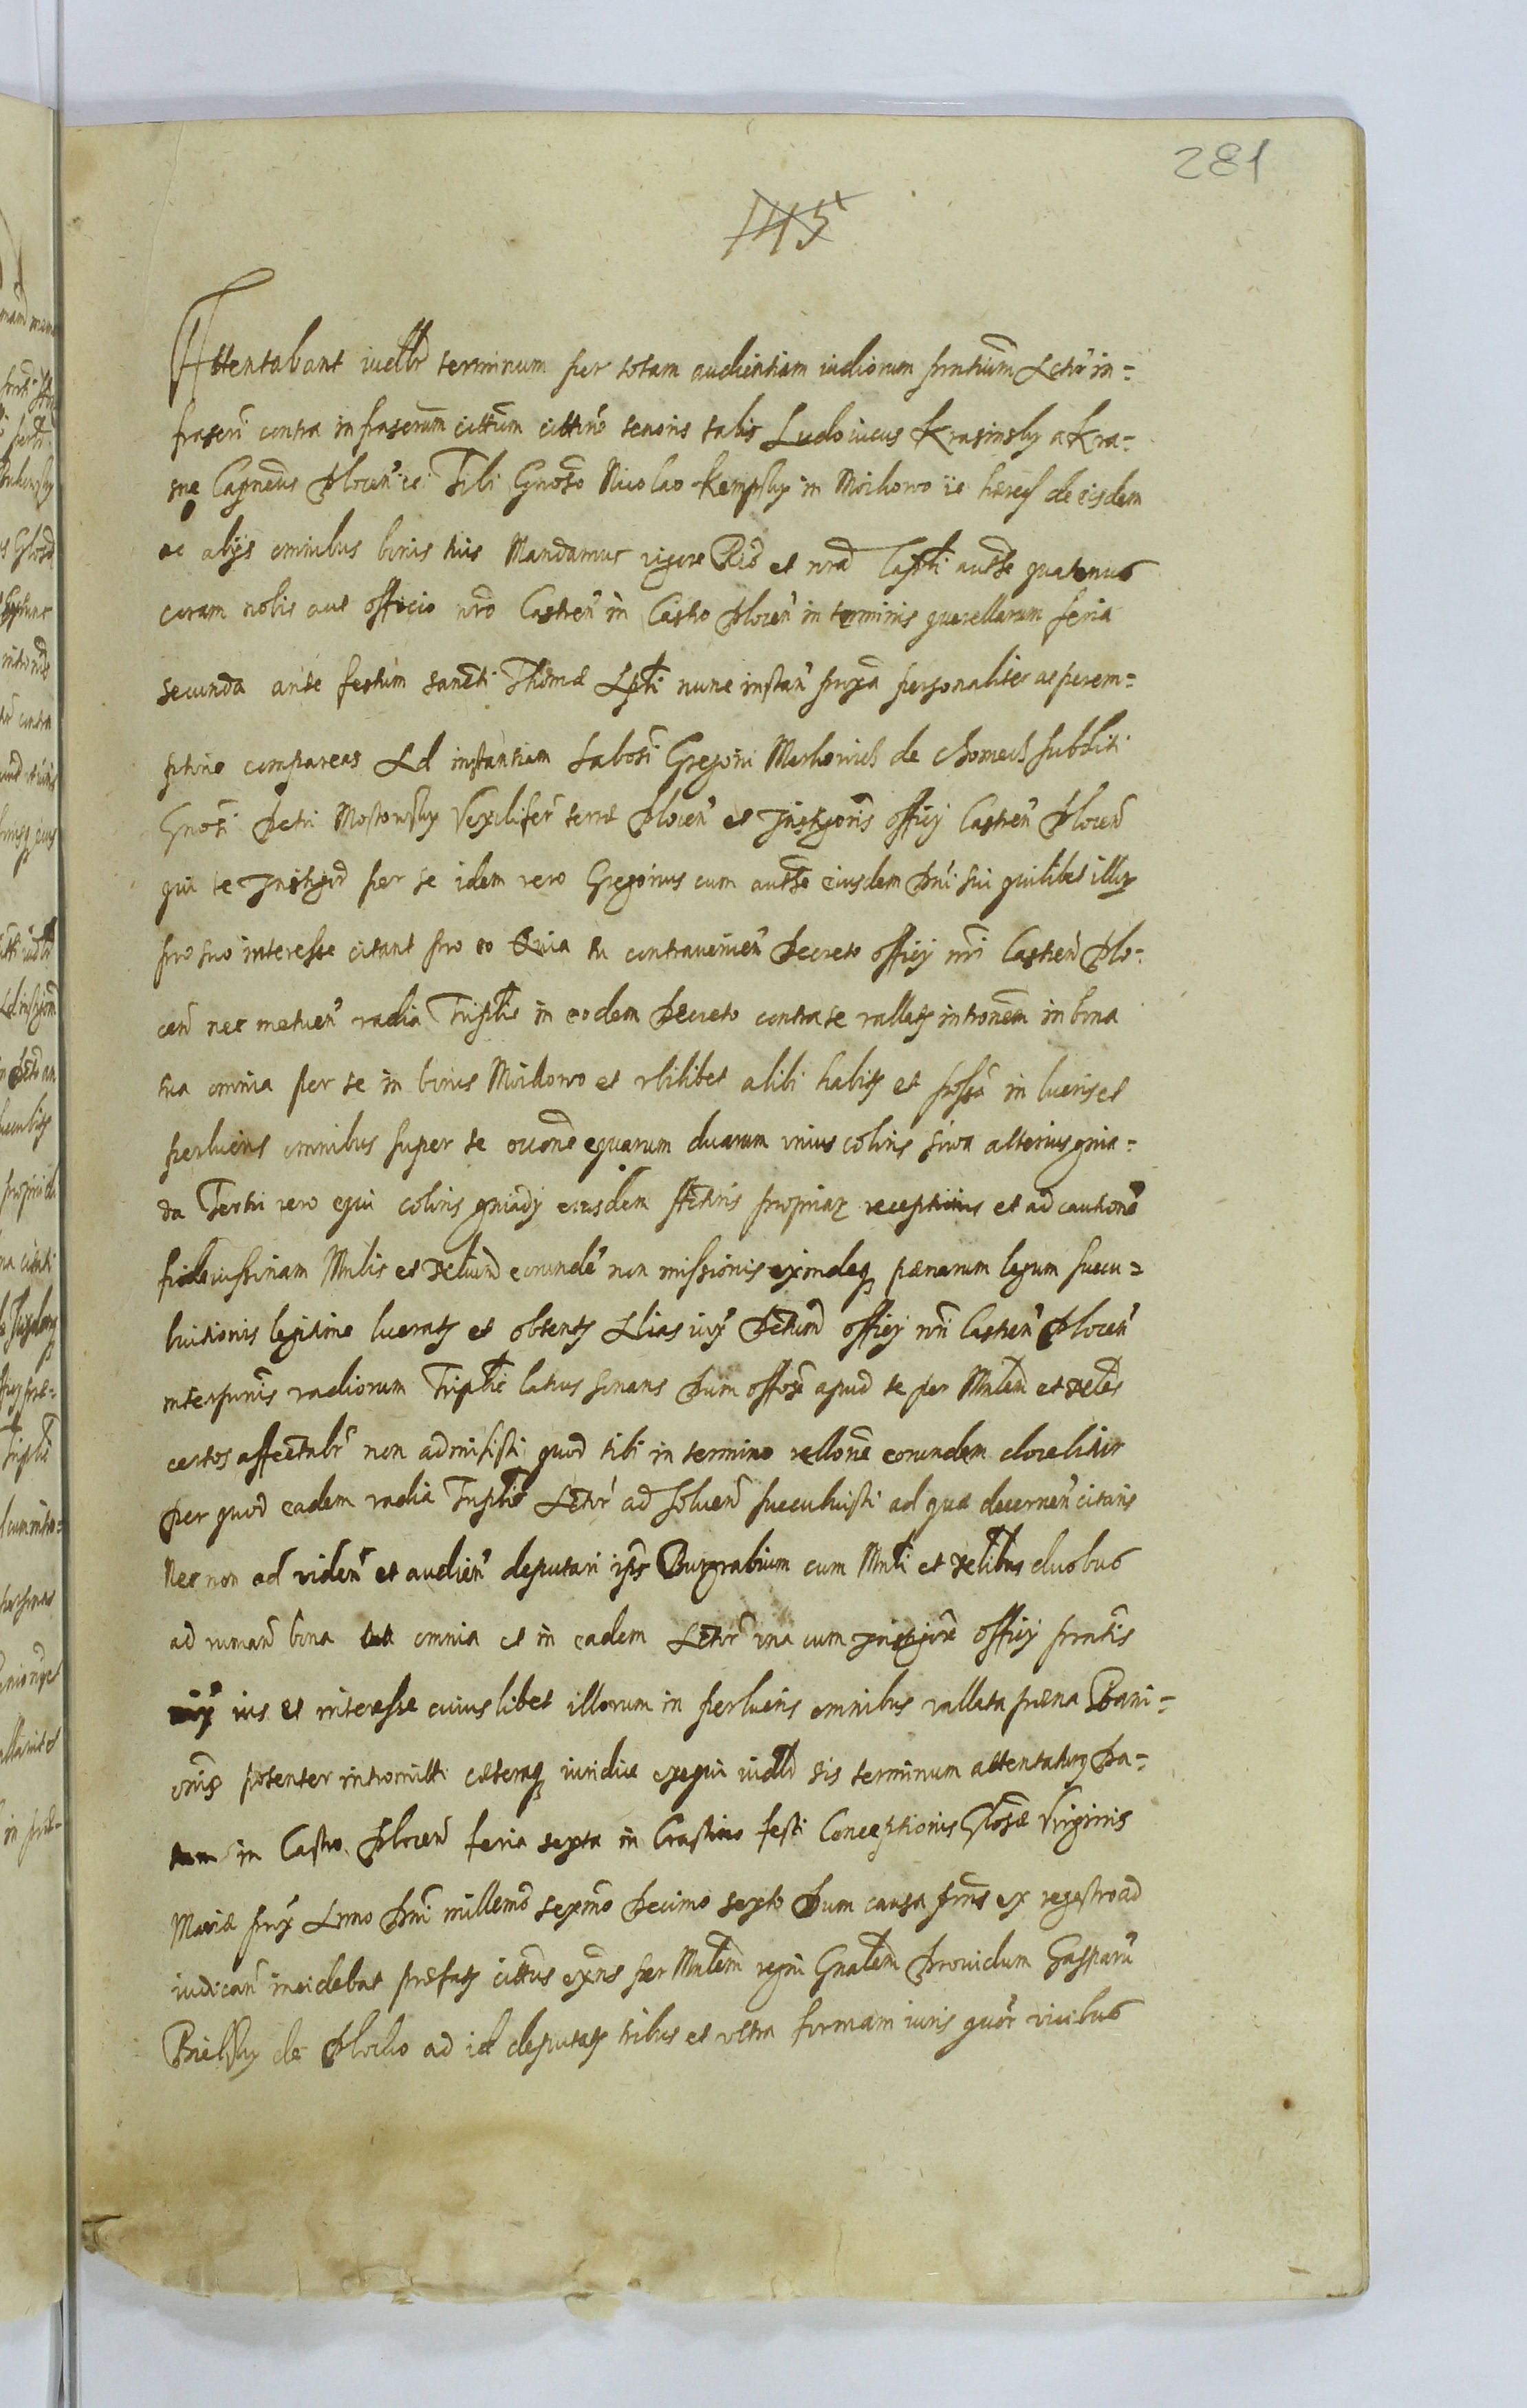 281
145
Attentabant iudlr terminum per totam audientiam iudiorum prntium Actor in=
frascri contra infrascrum cittum cittne tenoris talis Ludouicus Krasinsky a Kra=
sne Capneus Plocen ie Tibi Gnoso Nicolao Kempsky in Moikowo ie haeres de eisdem
ac alijs omnibus bonis tuis Mandamus vigore et nra Capti autte quatenus
coram nobis aut officio nro Castren in Castro Plocen in terminis querellarum feria
secunda ante festum sancti Thomae Apti nunc instan proxa personaliter ac perem=
ptorie compareas Ad instantiam Labosi Gregorii de subditi
Gnosi Petri Mostowsky Vexiliferi terrae Plocen et Instigoris officij Castren Plocen
qui te Instigor per se idem vero Gregorius cum autte eiusdem Dni sui quilibet illorum
pro suo interesse citant pro eo Quia tu contravenien Decreto officij nri Castren Plo=
cen nec metuen vadia Triplie in eodem Decreto contra te vallatq intronem in bona
tua omnia per te in bonis Moikowo et vbilibet alibi habitq et possa in lucris et
perlucris omnibus super te occone equarum duarum vnius coloris siwa alterius gnia=
da Tertii vero equi coloris gniady eiusdem Actoris propriar receptionis et ad cautione
fideiussoriam Mnlis et relium eorunde non missionis exindeq paenarum legum succu=
buitionis legitime lucratq et obtentq Alias iux Actum officij nri Castren Plocen
interponis vadiorum Triplie latius sonans Dum officose apud te per Mnlem et reles
certos affectabr non admisisti quod tibi in termino rellone eorundem docebitur
Per quod eadem vadia Triplie Actori ad soluen succubuisti ad quae decernen citaris
Nec non ad viden et audien deputari ipse Burgrabium cum Mnli et relibus duobus
ad ruman bona omnia et in eadem Actore vna cum Instigore officij prntis
ius et interesse cuiuslibet illorum in perlucris omnibus vallata paena Bani=
onis potenter intromitti caeteraq iuridice exequi iudlr sis terminum attentaturq Da=
tum in Castro Plocen feria sexta in Crastino festi Conceptionis Glosae Virginis
Mariae prox Anno Dni millemo sexmo Decimo sexto Dum causa prns ex regestro ad
iudican incidebat praefatq cittus exns per Mnlem regni Gnalem Prouidum Gasparu
Bielsky de Plocko ad id deputatq tribus et vltra formam iuris quor vicibus